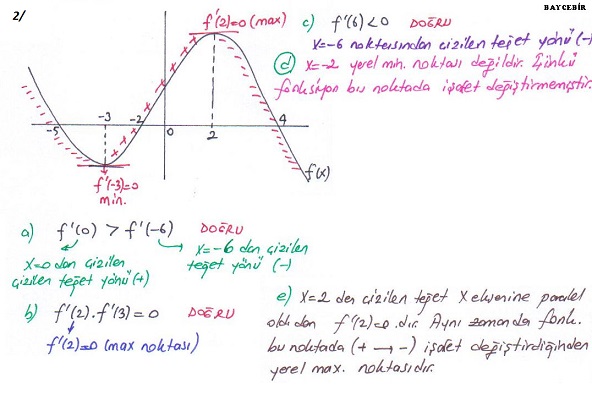 BAYCEBİR
2/
f'(2)=0 (max)
-5
-3
-2
0
2
4
f(x)
f'(-3)=0
min.
c) f'(6)<0 DOĞRU
x=-6 noktasından çizilen teğet yönü (-)
d) x=-2 yerel min. noktası değildir. Çünkü
fonksiyon bu noktada işaret değiştirmemiştir.
a) f'(0) > f'(-6) DOĞRU
x=0 dan çizilen
çizilen teğet yönü (+)
x=-6 dan çizilen
teğet yönü (-)
b) f'(2).f'(3)=0 DOĞRU
f'(2)=0 (max noktası)
e) x=2 den çizilen teğet X eksenine paralel
olduğundan f'(2)=0 dır. Aynı zamanda fonk.
bu noktada (+ → -) işaret değiştirdiğinden
yerel max. noktasıdır.